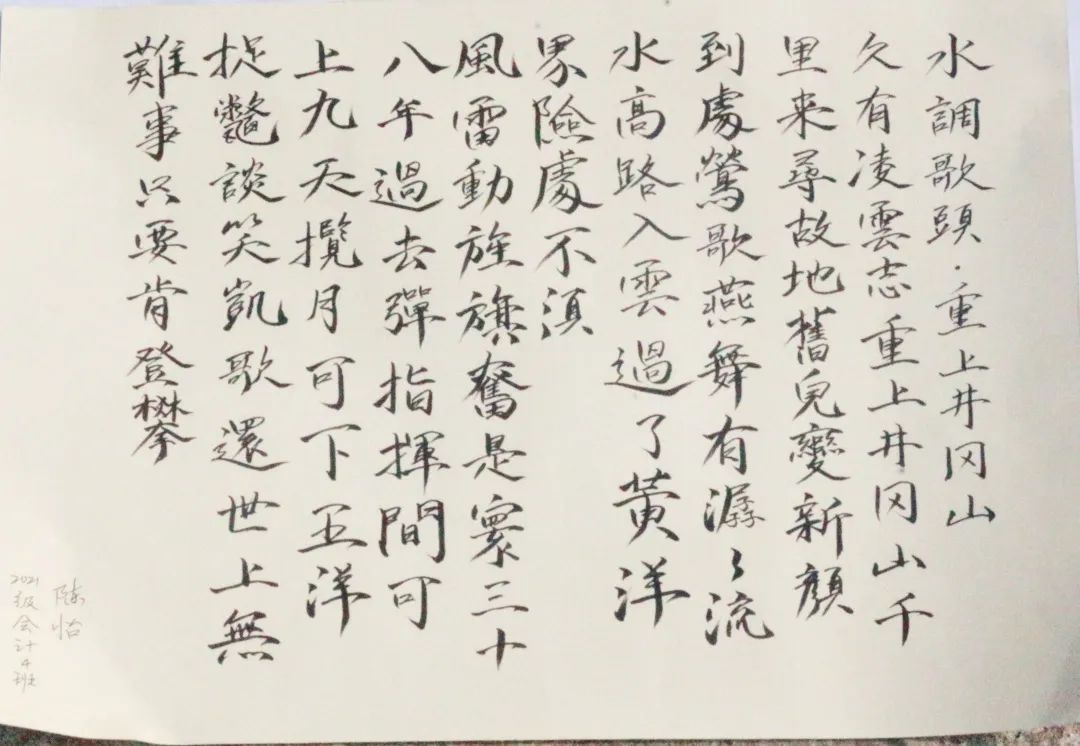 水調歌頭·重上井冈山
久有凌雲志重上井冈山千
里来尋故地舊皃變新顏
到處鶯歌燕舞有潺〻流
水高路入雲過了黄洋
界險處不湏
風雷動旌旗奮是寰三十
八年過去彈指揮間可
上九天攬月可下五洋
捉鼈談笑凱歌還世上無
難事只要肯登攀
陈怡
2021级会计4班